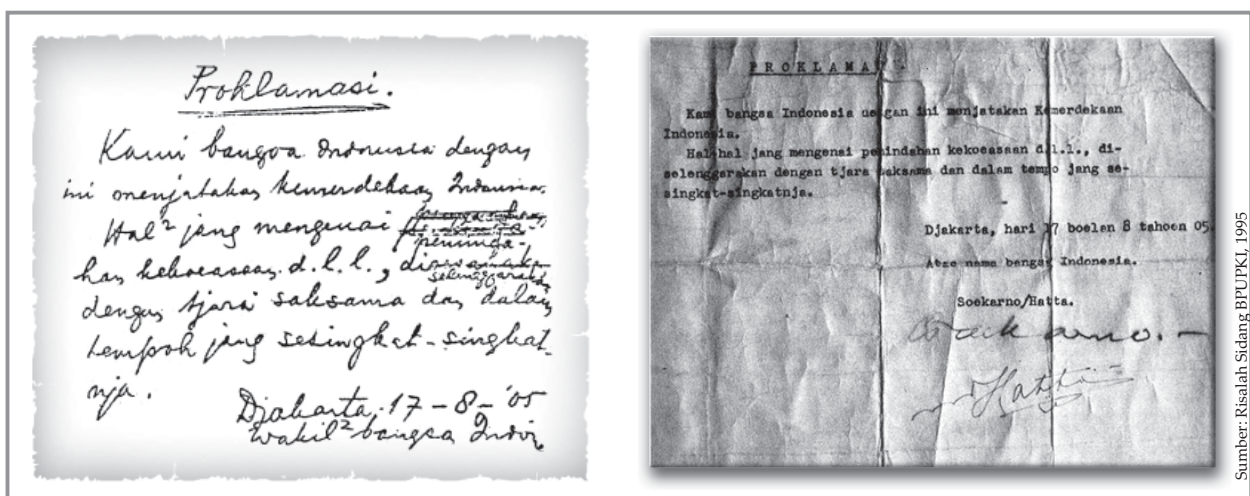 Proklamasi.
Kami bangsa Indonesia dengan
ini menjatakan kemerdekaan Indonesia.
Hal² jang mengenai peminda-
han kekoeasaan d.l.l., diselenggarakan
dengan tjara saksama dan dalam
tempoh jang sesingkat-singkat-
nja.
Djakarta, 17 - 8 - '05
Wakil² bangsa Indon.
P R O K L A M A
Kami bangsa Indonesia dengan ini menjatakan Kemerdekaan
Indonesia.
Hal-hal jang mengenai pemindahan kekoeasaan d.l.l., di-
selenggarakan dengan tjara saksama dan dalam tempo jang se-
singkat-singkatnja.
Djakarta, hari 17 boelan 8 tahoen 05.
Atas nama bangsa Indonesia.
Soekarno/Hatta.
Soekarno.-
Hatta
Sumber: Risalah Sidang BPUPKI, 1995